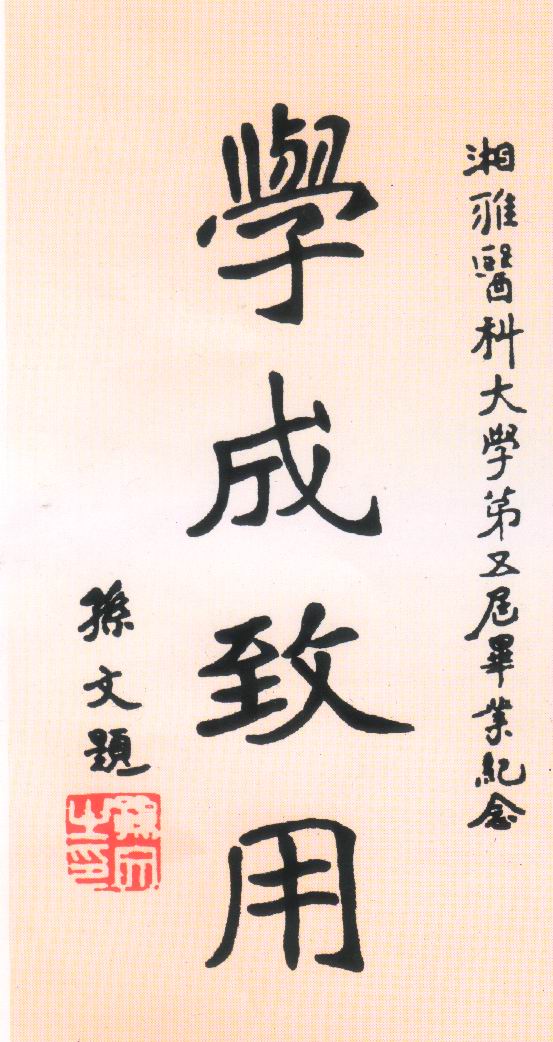 湘雅醫科大學第五屆畢業紀念
學成致用
孫文題
孫文之印